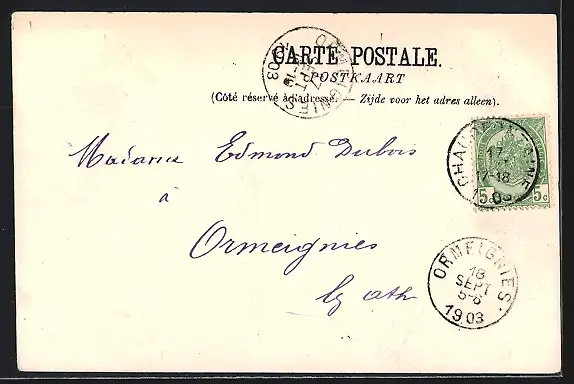 CARTE POSTALE.
POSTKAART
(Côté réservé à l'adresse. — Zijde voor het adres alleen).
Madame Edmond Dubois
à
Ormeignies
lz Ath
5c 5c
CHAUDFONTAINE
17
17-18
1903
ORMEIGNIES
18
SEPT
5-6
1903